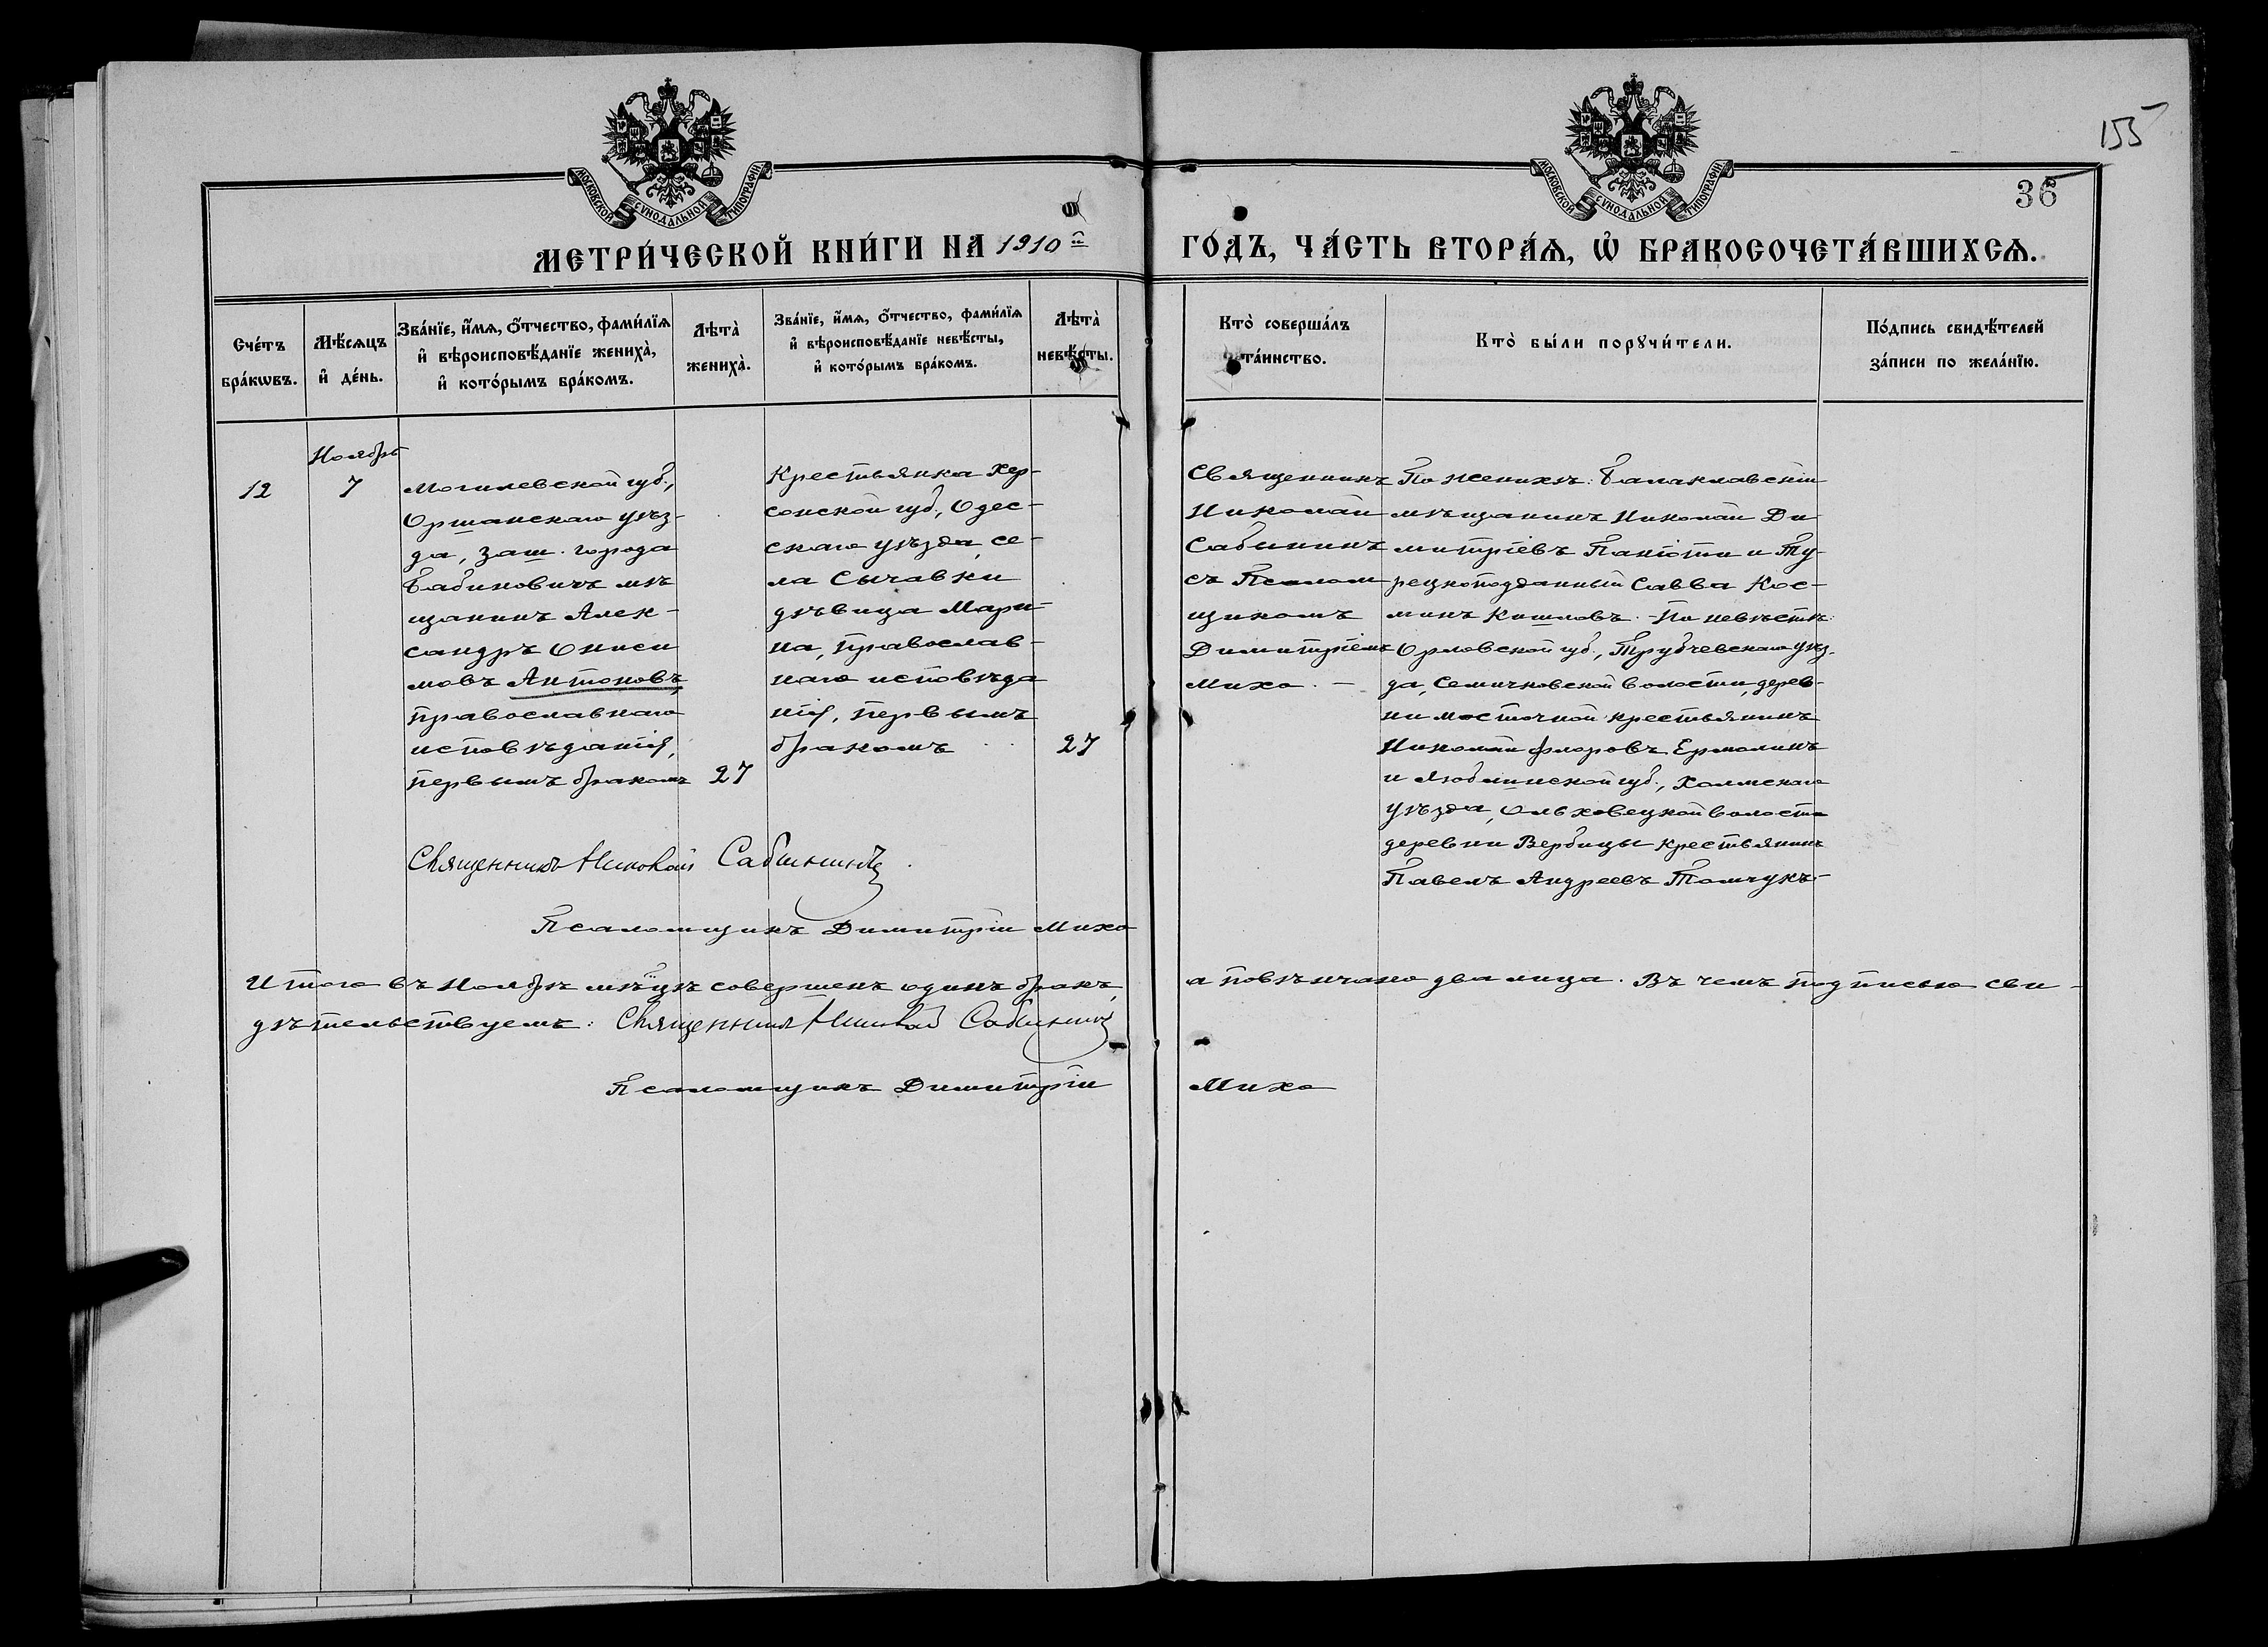 155
36
МОСКОВСКОЙ СѴНОДАЛЬНОЙ ТИПОГРАФІИ
МОСКОВСКОЙ СѴНОДАЛЬНОЙ ТИПОГРАФІИ
МЕТРИ́ЧЕСКОЙ КНИ́ГИ НА 1910й ГО́ДЪ, ЧА́СТЬ ВТОРА́Ѧ, Ѡ БРАКОСОЧЕТА́ВШИХСѦ.
Сче́тъ
бра́кωвъ.
Мѣ́сѧцъ
и҆ де́нь.
Зва́нїе, и҆́мѧ, ѻ҆́тчество, фами́лїѧ
и҆ вѣроисповѣ́данїе жениха̀,
и҆ кото́рымъ бра́комъ.
Лѣта̀
жениха̀.
Зва́нїе, и҆́мѧ, ѻ҆́тчество, фами́лїѧ
и҆ вѣроисповѣ́данїе невѣ́сты,
и҆ кото́рымъ бра́комъ.
Лѣта̀
невѣ́сты.
Кто̀ соверша́лъ
та́инство.
Кто̀ бы́ли порꙋчи́тели.
По́дпись свидѣ́телей
за́писи по жела́нїю.
12
Ноябрь
7
Могилевской губ.,
Оршанскаго уѣз-
да, заш. города
Бабиновичъ мѣ
щанинъ Алек-
сандръ Ониси
мовъ Антоновъ
православнаго
исповѣданія,
первымъ бракомъ
27
Крестьянка Хер-
сонской губ., Одес-
скаго уѣзда, се-
ла Сычавки
дѣвица Мари-
на, православ-
наго исповѣда
нія, первымъ
бракомъ
27
Священникъ
Николай
Сабининъ
съ Псалом
щикомъ
Димитріемъ
Михо. —
По женихѣ: Балаклавскій
мѣщанинъ Николай Ди
митріевъ Паніоти и Ту-
рецкоподданный Савва Кос-
минъ Кишловъ. - По невѣстѣ:
Орловской губ., Трубчевскаго уѣз-
да, Семичковской волости, дерев-
ни Мосточной крестьянинъ
Николай Флоровъ Ермолинъ
и Люблинской губ., Холмскаго
уѣзда, Ольховецкой волости
деревни Вербицы крестьянинъ
Павелъ Андреевъ Томчукъ-
Священникъ Николай Сабининъ.
Псаломщикъ Димитрій Михо
Итого въ Ноябрѣ мѣцѣ совершенъ одинъ бракъ, а повѣнчано два лица. Въ чемъ подписью сви-
дѣтельствуемъ: Священникъ Николай Сабининъ
Псаломщикъ Димитрій Михо